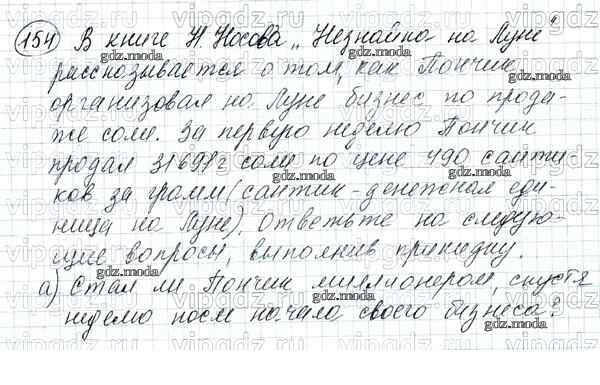 154 В книге Н. Носова „Незнайка на Луне"
рассказывается о том, как Пончик
организовал на Луне бизнес по прода-
же соли. За первую неделю Пончик
продал г соли по цене 490 санти
ков за грамм (сантик - денежная еди-
ница на Луне). Ответьте на следую-
щие вопросы, выполнив прикидку.
а) Стал ли Пончик миллионером, спустя
неделю после начала своего бизнеса?